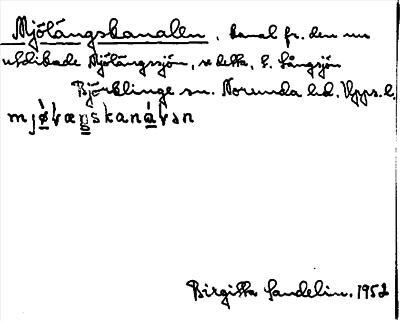 Mjölängskanalen, kanal fr. den nu
utdikade Mjölängssjön, se detta, t. Långsjön
Björklinge sn. Norunda hd. Upps. l.
mjø̀ɭæŋskaná̱ɭən
Birgitta Sandelin. 1952